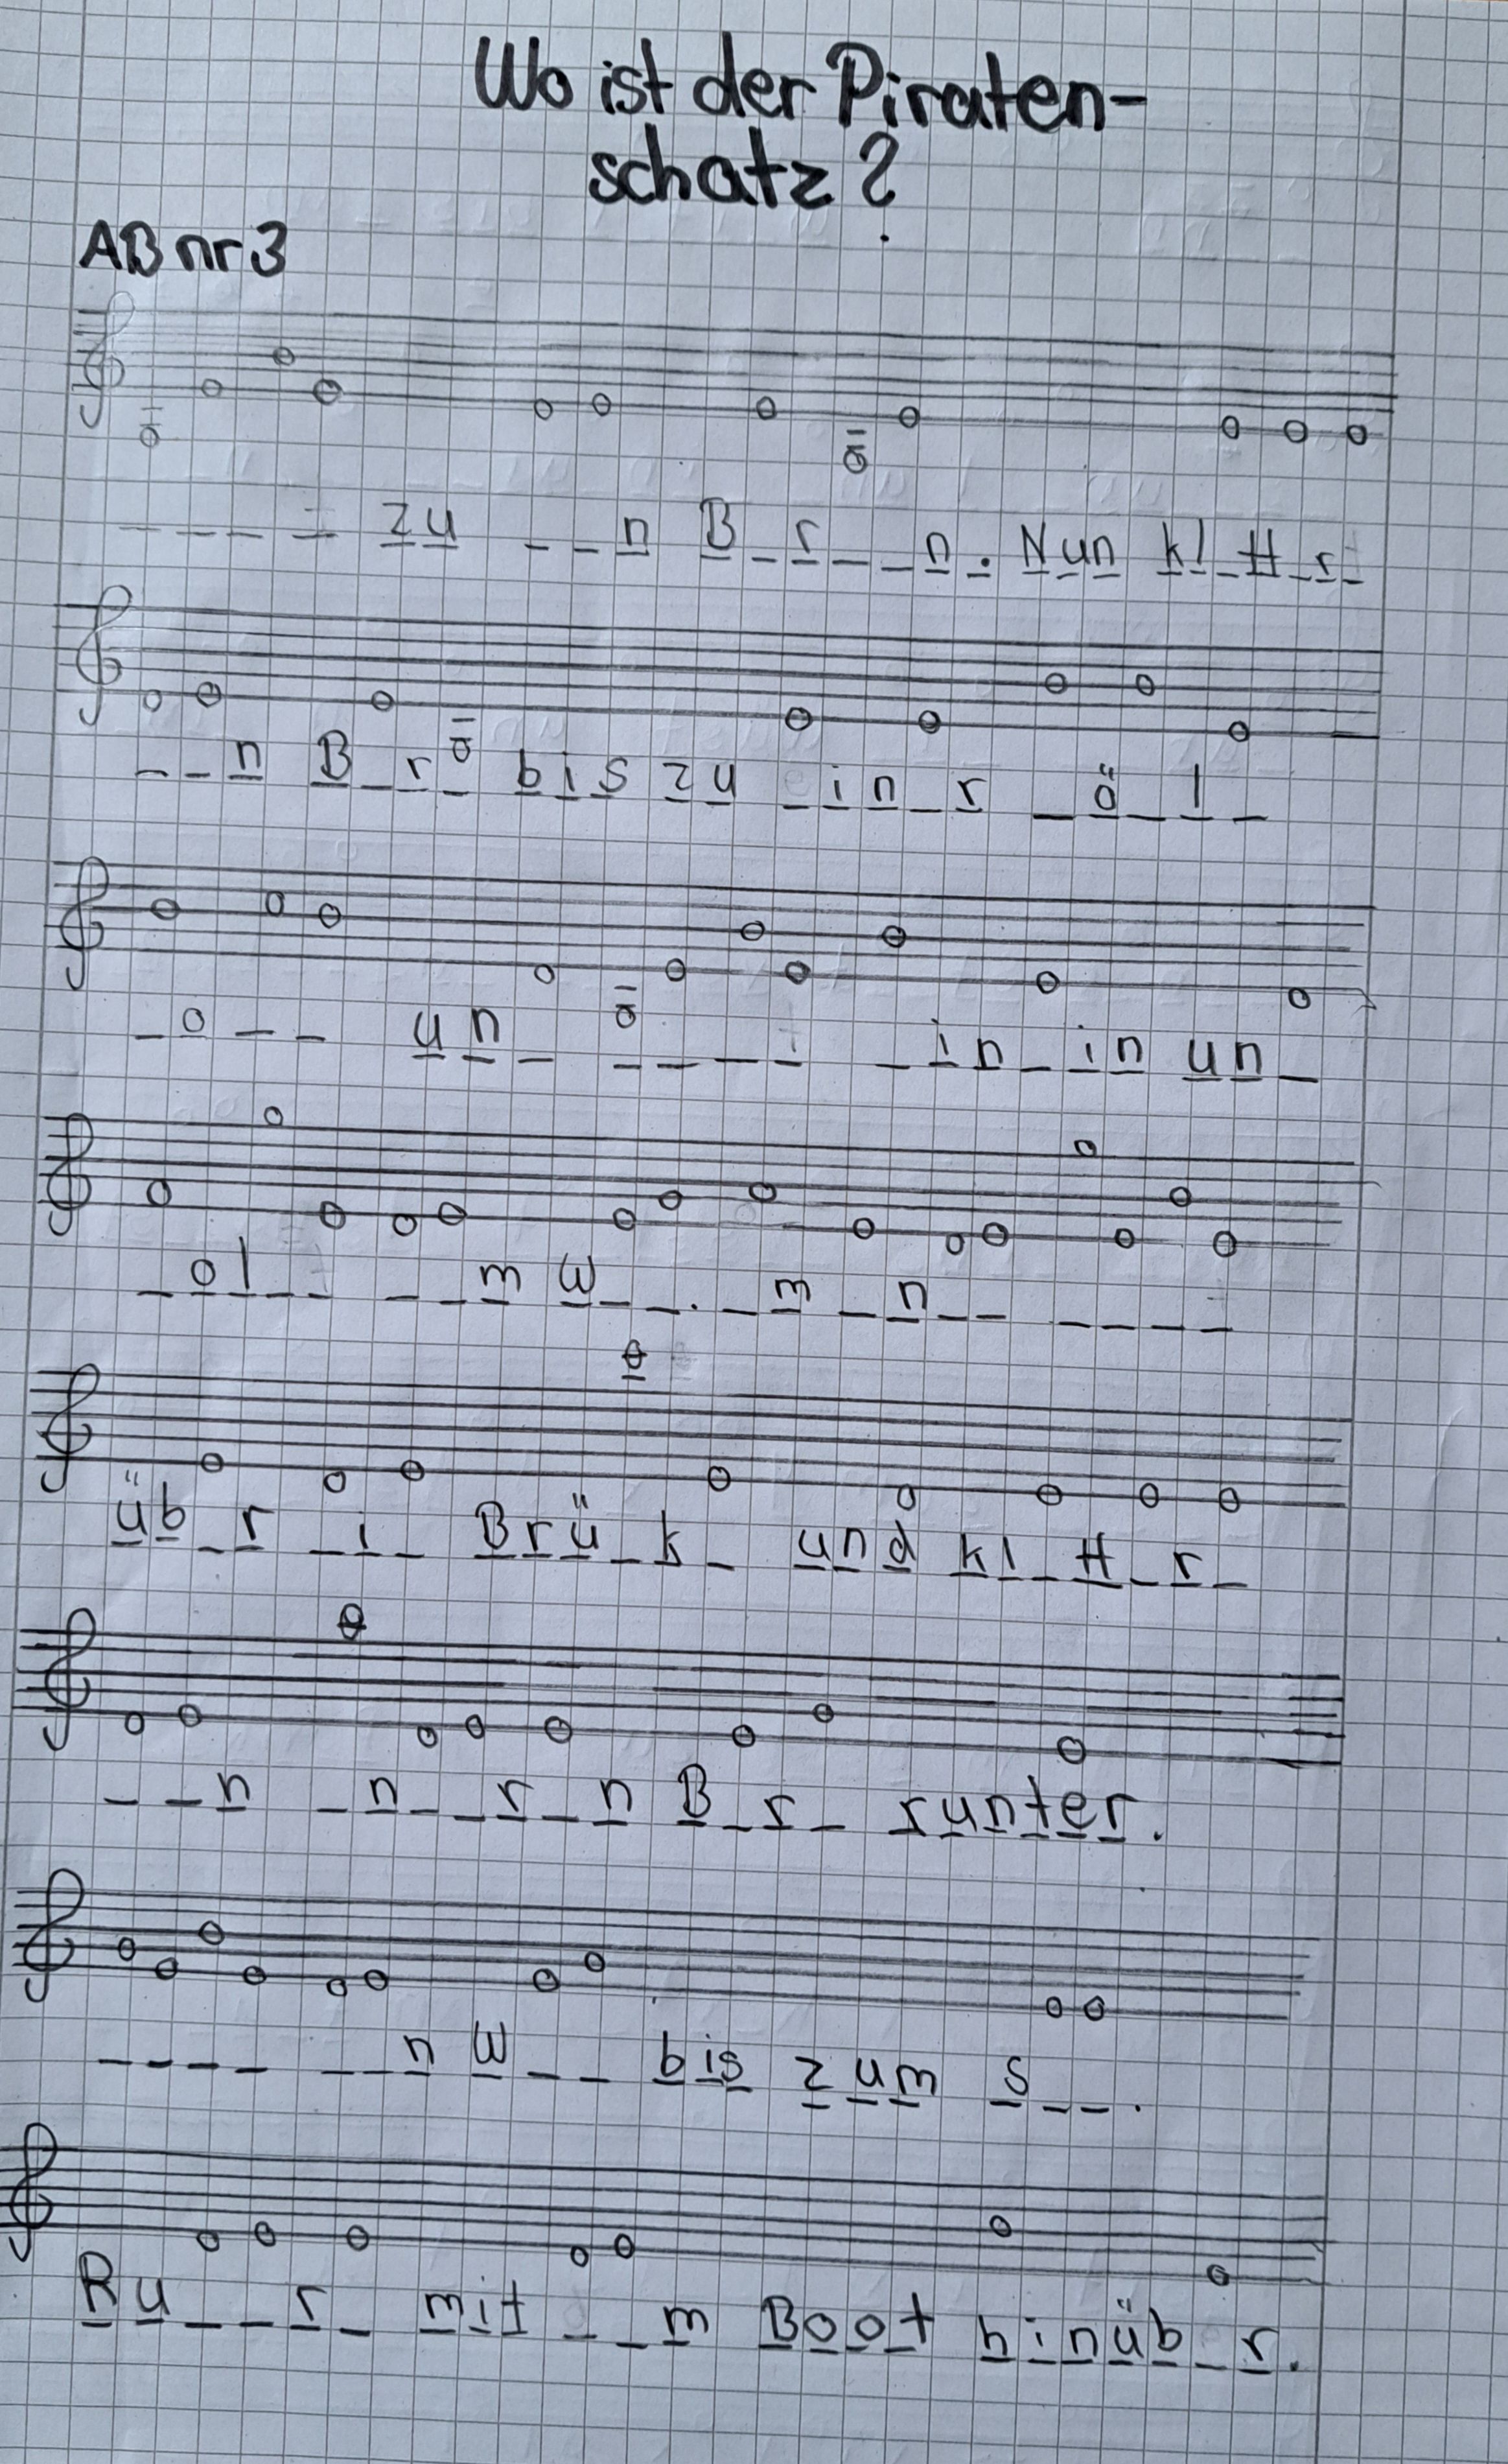 Wo ist der Piraten-
schatz?
AB nr 3
_ _ _ _ zu _ _ n B _ r _ _ n. Nun kl _ tt _ r _
_ _ n B _ r _ bis zu _ in _ r _ ö _ l _
_ o _ _ un _ _ _ _ _ i _ in _ in un _
_ ol _ _ _ _ m W _ _. _ m _ n _ _ _ _ _ _
üb _ r _ i _ Brü _ k _ und kl _ tt _ r _
_ _ n _ n _ _ r _ n B _ r _ runter.
_ _ _ _ _ _ n W _ _ bis zum S _ _.
Ru _ _ r _ mit _ _ m Boot hinüb _ r.